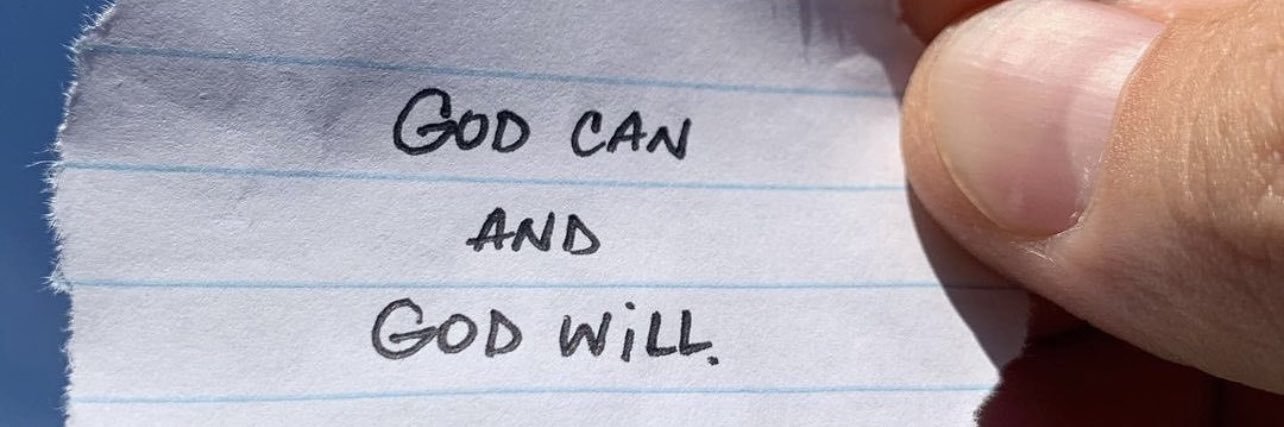 GOD CAN
AND
GOD WiLL.